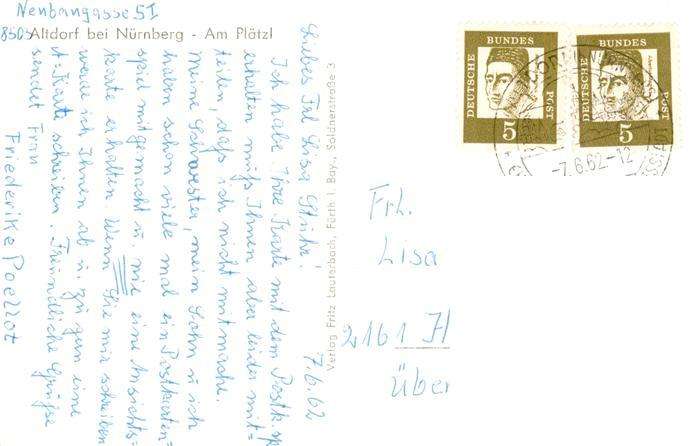 Neubangasse 5 I
8503 Altdorf bei Nürnberg - Am Plätzl
7.6.62
Liebes Frl. Lisa
Ich habe Ihre Karte mit dem Postk. sp
erhalten muß Ihnen aber leider mit=
teilen, daß ich nicht mitmache.
Meine Schwester, mein Sohn u. ich
haben schon viele mal ein Postkarten=
spiel mitgemacht u. nie eine Ansichts=
karte erhalten. Wenn Sie mir schreiben
werde ich Ihnen ab u. zu gern eine
A=Karte schreiben. Freundliche Grüße
sendet Frau
Friederike Poellot
Verlag Fritz Lauterbach, Fürth i. Bay., Soldnerstraße 3
DEUTSCHE BUNDESPOST
5
DEUTSCHE BUNDESPOST
5
-7.6.62-12
Frl.
Lisa
2161 H
über